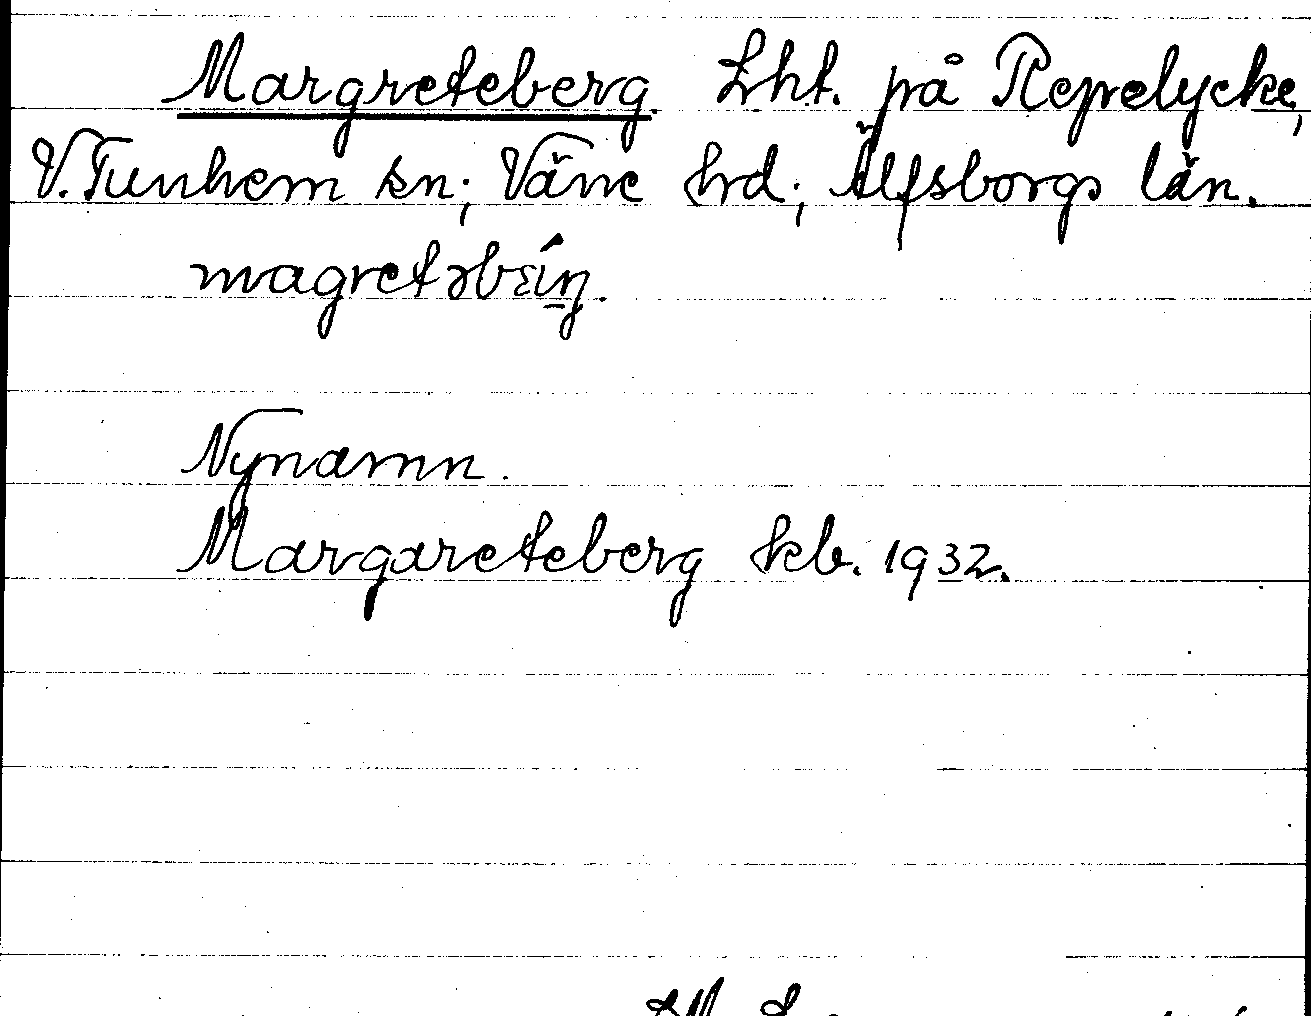 Margreteberg. Lht. på Repelycke,
V. Tunhem sn; Väne hrd; Älfsborgs län.
Nynamn.
Margareteberg kb. 1932.